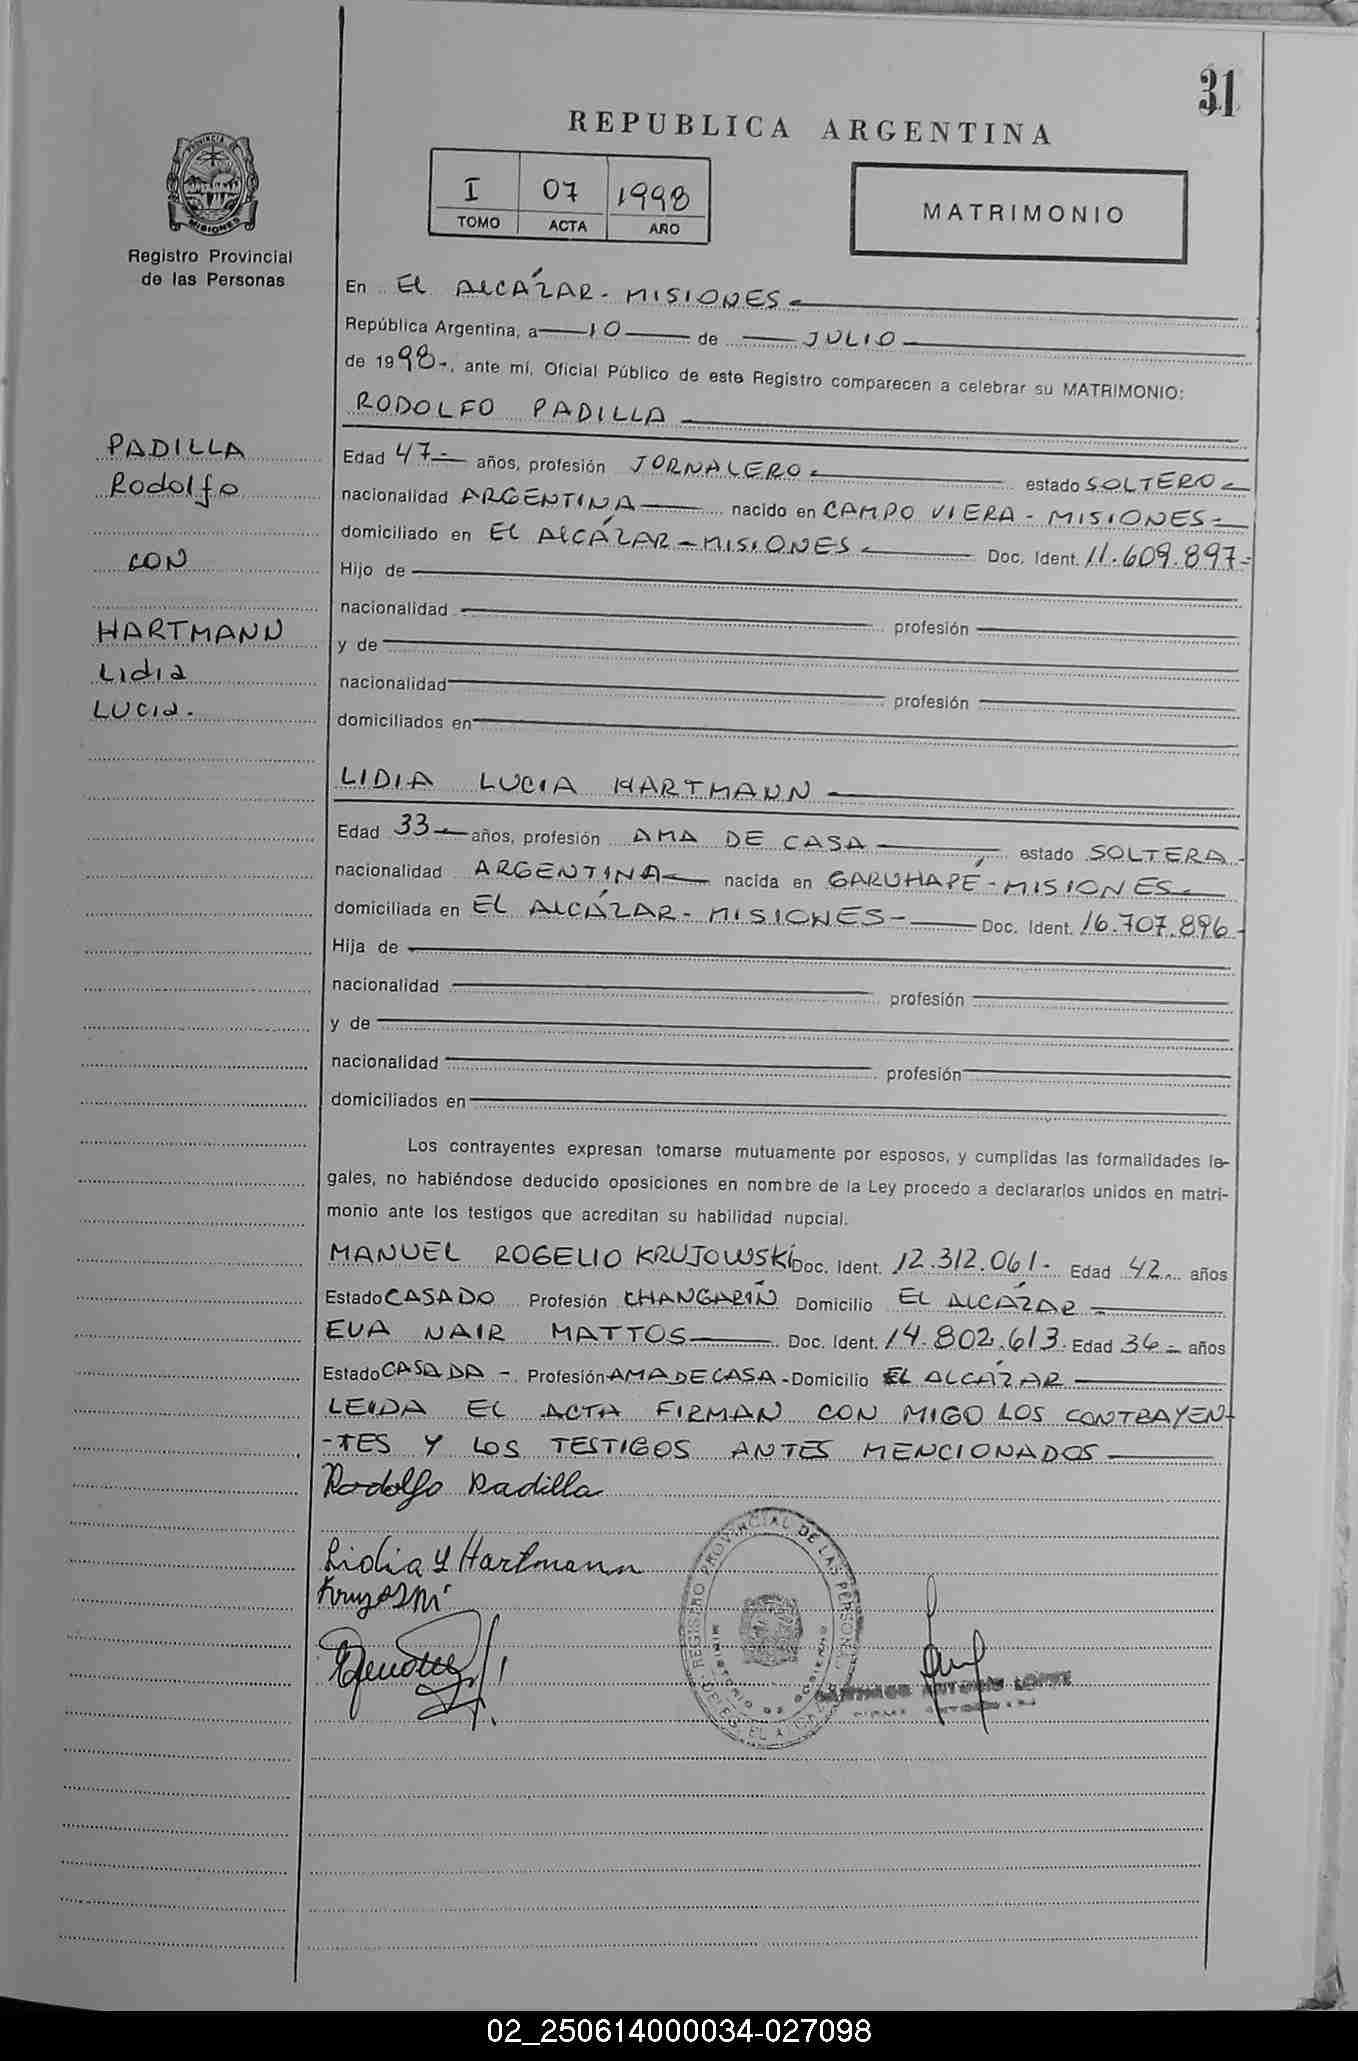 31
REPUBLICA ARGENTINA
I 07 1998
TOMO ACTA AÑO
MATRIMONIO
PROVINCIA DE
MISIONES
Registro Provincial
de las Personas
En EL ALCÁZAR - MISIONES
República Argentina, a 10 de JULIO
de 1998-, ante mí, Oficial Público de este Registro comparecen a celebrar su MATRIMONIO:
RODOLFO PADILLA
PADILLA
Rodolfo
CON
HARTMANN
Lidia
LUCIA.
Edad 47- años, profesión JORNALERO- estado SOLTERO-
nacionalidad ARGENTINA nacido en CAMPO VIERA - MISIONES-
domiciliado en EL ALCÁZAR - MISIONES Doc. Ident. 11.609.897=
Hijo de
nacionalidad profesión
y de
nacionalidad profesión
domiciliados en
LIDIA LUCIA HARTMANN
Edad 33- años, profesión AMA DE CASA estado SOLTERA-
nacionalidad ARGENTINA nacida en GARUHAPÉ - MISIONES
domiciliada en EL ALCÁZAR - MISIONES- Doc. Ident. 16.707.896-
Hija de
nacionalidad profesión
y de
nacionalidad profesión
domiciliados en
Los contrayentes expresan tomarse mutuamente por esposos, y cumplidas las formalidades le-
gales, no habiéndose deducido oposiciones en nombre de la Ley procedo a declararlos unidos en matri-
monio ante los testigos que acreditan su habilidad nupcial.
MANUEL ROGELIO KRUJOWSKI Doc. Ident. 12.312.061- Edad 42 años
Estado CASADO Profesión CHANGARÍN Domicilio EL ALCÁZAR
EVA NAIR MATTOS Doc. Ident. 14.802.613. Edad 36 años
Estado CASADA - Profesión AMA DE CASA - Domicilio EL ALCÁZAR
LEIDA EL ACTA FIRMAN CON MIGO LOS CONTRAYEN-
-TES Y LOS TESTIGOS ANTES MENCIONADOS
Rodolfo Padilla
Lidia L Hartmann
REGISTRO PROVINCIAL DE LAS PERSONAS
MINISTERIO DE GOBIERNO
DELEG. EL ALCAZAR
SANTIAGO ANTONIO LOPEZ
02_250614000034-027098